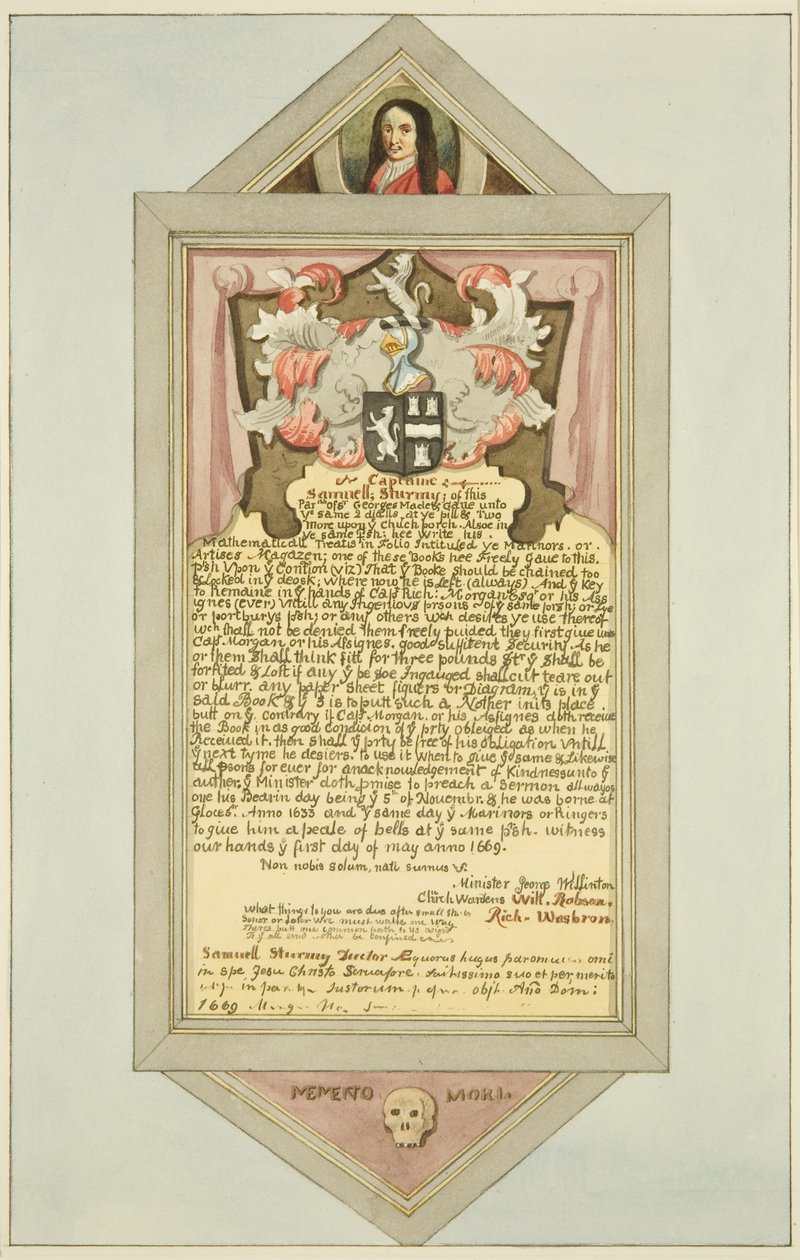 Captaine
Samuell; Sturmy; of this
Par of Sᵗ Georges Made & Gaue unto
yᵉ same 2 dialls at ye pill & Two
more upon ỹ Chuch porch. Alsoe in
ye same Psh; hee Write his
Mathematicall Treatis in Folio Intituled ye Marinors. or.
Artises Magazen; one of these Books hee Freely Gaue to this.
psh Vpon ỹ Contion (viz) That ỹ Booke should be chained too
& Locked in ỹ deosk; where now he is Left (always) And ỹ Key
to Remaine in ỹ hands of Capᵗ Rich: Morgan Esqʳ or his Ass
ignes (Ever) Vntill any Ingenious prsons of ỹ same prsh; or
or portburys psh; or any others wch desires ye use thereof
wch shall not be denied them freely puided they first giue unto
Capᵗ Morgan or his Assignes. good & suffitent Security. As he
or them Shall think fitt for three pounds Sᵗ ỹ Shall be
forfited & Lost if any ỹ be soe Ingauged shall cut teare out
or blurr. any paper Sheet figuers or Diagram, ỹ is in ỹ
Said Book & ỹ 3 is to putt such a Nother in its place.
butt on ỹ. contrary if Capᵗ Morgan. or his Assignes doth receiue
the Book in as good Condicion of ỹ prty obleiged as when he
Received it. then Shall ỹ prty be free of his obligation Vntill
ỹ next tyme he desiers. to use it When to giue ỹ same & Likewise
all psons for euer for an acknowledgement of Kindness unto ỹ
author, ỹ Minister doth pmise to preach a Sermon all wayes
one his Bearin day being ỹ 5ᵗʰ of Nouembr. & he was borne at
Glocesʳ. Anno 1633 and ỹ same day ỹ Marinors or Ringers
to giue him a peale of bells at ỹ same psh. witness
our hands ỹ first day of may anno 1669.
Non nobis solum, nati sumus
Minister George Willinton
Chrch Wardens Will. Robson.
What things to you are due after small
Rich. Wasbron.
Soner or Later Wee must walke one way
Theres butt one common path to us
all and be confined
Samuell Sturmy Auctor Æquorus hugus paromuius omi
in spe Jesu Christo Seruafore. suo et per merito
in Justorum objt Año Dom:
1669
MEMENTO MORI.